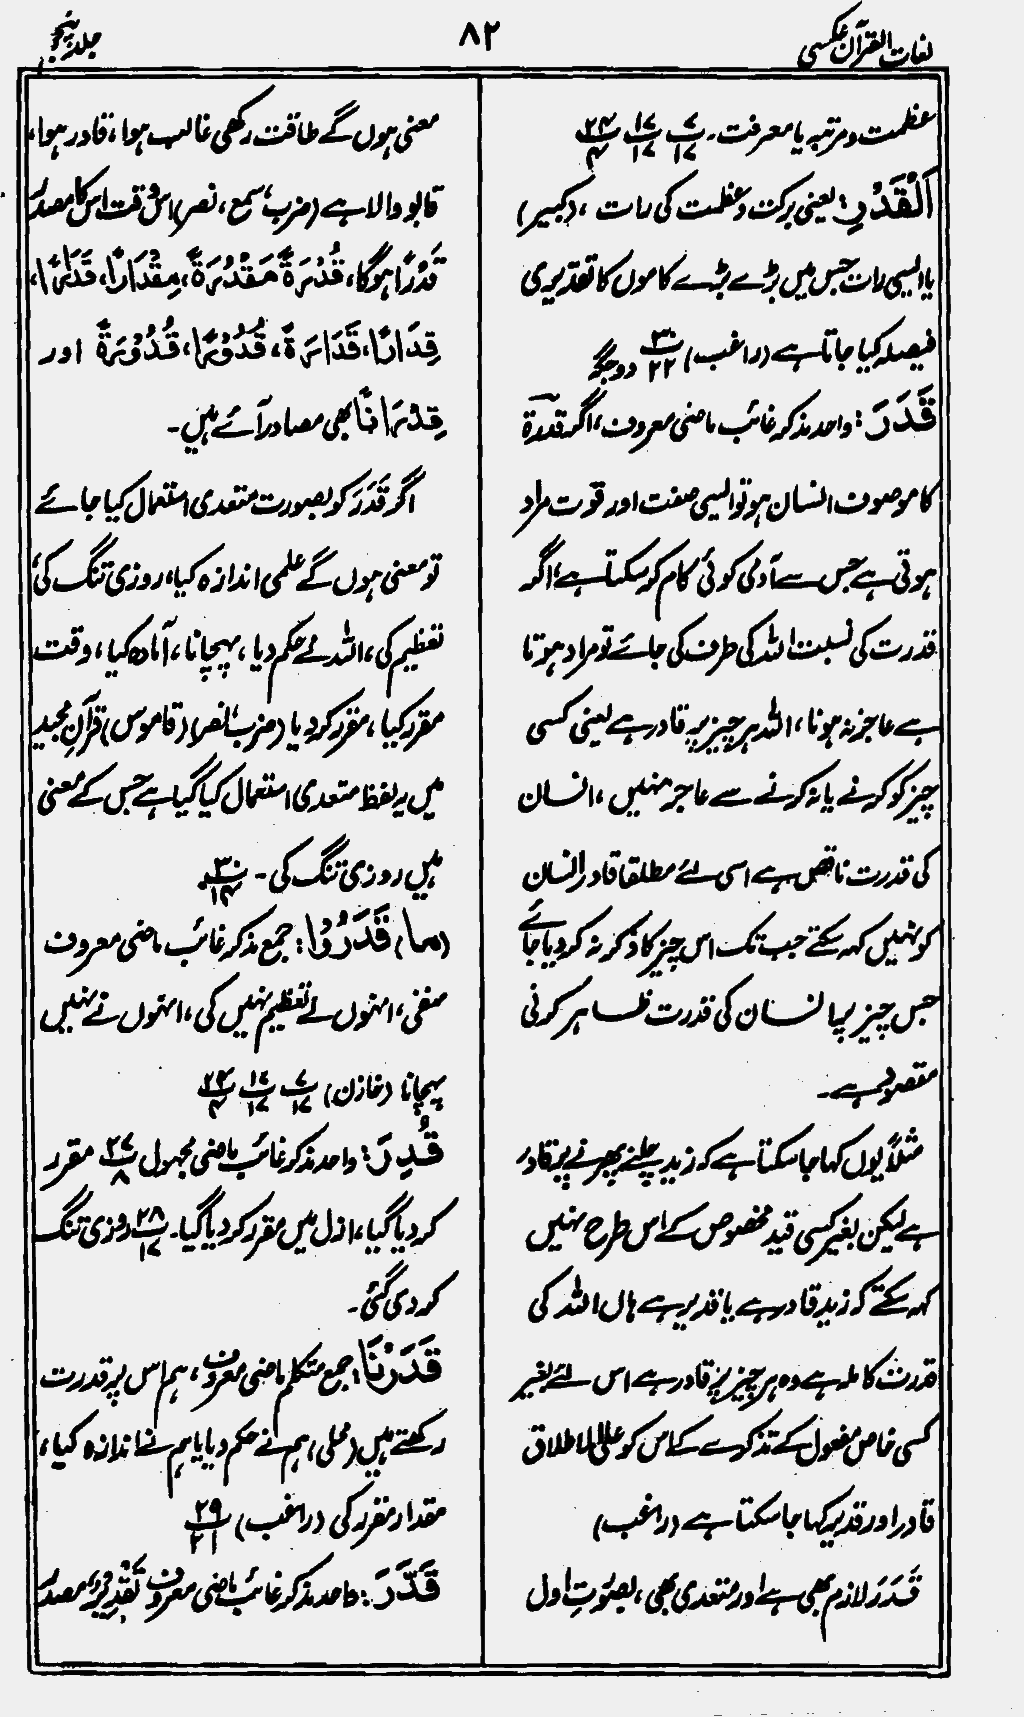 لغات القرآن عکسی
۸۲
جلد پنجم
عظمت و مرتبہ یا معرفت۔ پ ۷/۱۷ پ ۱۷/۱۷ پ ۲۴/۴
اَلْقَدْرِ: یعنی برکت و عظمت کی رات، (کبیر)
یا ایسی رات جس میں بڑے بڑے کاموں کا تقدیری
فیصلہ کیا جاتا ہے (راغب) پ ۳۰/۲۲ دو جگہ
قَدَرَ: واحد مذکر غائب ماضی معروف، اگر قدرۃ
کا موصوف انسان ہو تو ایسی صفت اور قوت مراد
ہوتی ہے جس سے آدمی کوئی کام کر سکتا ہے، اگر
قدرت کی نسبت اللہ کی طرف کی جائے تو مراد ہوتا
ہے عاجز نہ ہونا، اللہ ہر چیز پر قادر ہے یعنی کسی
چیز کو کرنے یا نہ کرنے سے عاجز نہیں، انسان
کی قدرت ناقص ہے اسی لئے مطلقا قادر انسان
کو نہیں کہہ سکتے جب تک اس چیز کا ذکر نہ کر دیا جائے
جس چیز پر انسان کی قدرت ظاہر کرنی
مقصود ہے۔
مثلاً یوں کہا جا سکتا ہے کہ زید چلنے پھرنے پر قادر
ہے لیکن بغیر کسی قید مخصوص کے اس طرح نہیں
کہہ سکتے کہ زید قادر ہے یا قدیر ہے ہاں اللہ کی
قدرت کاملہ ہے وہ ہر چیز پر قادر ہے اس لئے بغیر
کسی خاص مفعول کے تذکرے کے اس کو علی الاطلاق
قادر اور قدیر کہا جا سکتا ہے (راغب)
قَدَرَ لازم بھی ہے اور متعدی بھی، بصورتِ اول
معنی ہوں گے طاقت رکھی غالب ہوا، قادر ہوا،
قابو والا ہے (ضرب، سمع، نصر) اس وقت اس کا مصدر
قَدْرًا ہوگا، قُدْرَۃً مَقْدُرَۃً، مِقْدَارًا، قَدَرًا،
قِدَارًا، قَدَارَۃً، قُدُوْرًا، قُدُوْرَۃً اور
قِدْرَانًا بھی مصادر آئے ہیں۔
اگر قَدَرَ کو بصورت متعدی استعمال کیا جائے
تو معنی ہوں گے علمی اندازہ کیا، روزی تنگ کی،
تعظیم کی، اللہ نے حکم دیا، پہچانا، آمادہ کیا، وقت
مقرر کیا، مقرر کر دیا (ضرب، نصر) (قاموس) قرآنِ مجید
میں یہ لفظ متعدی استعمال کیا گیا ہے جس کے معنی
ہیں روزی تنگ کی۔ پ ۳۰/۱۴
(ما) قَدَرُوْا: جمع مذکر غائب ماضی معروف
منفی، انہوں نے تعظیم نہیں کی، انہوں نے نہیں
پہچانا (خازن) پ ۷/۱۷ پ ۱۷/۱۷ پ ۲۴/۴
قُدِرَ: واحد مذکر غائب ماضی مجہول پ ۲۷/۸ مقرر
کر دیا گیا، ازل میں مقرر کر دیا گیا۔ پ ۲۸/۱۷ روزی تنگ
کر دی گئی۔
قَدَرْنَا: جمع متکلم ماضی معروف، ہم اس پر قدرت
رکھتے ہیں (محلی) ہم نے حکم دیا یا ہم نے اندازہ کیا،
مقدار مقرر کی (راغب) پ ۲۹/۲۱
قَدَّرَ: واحد مذکر غائب ماضی معروف تَقْدِیْرٌ مصدر